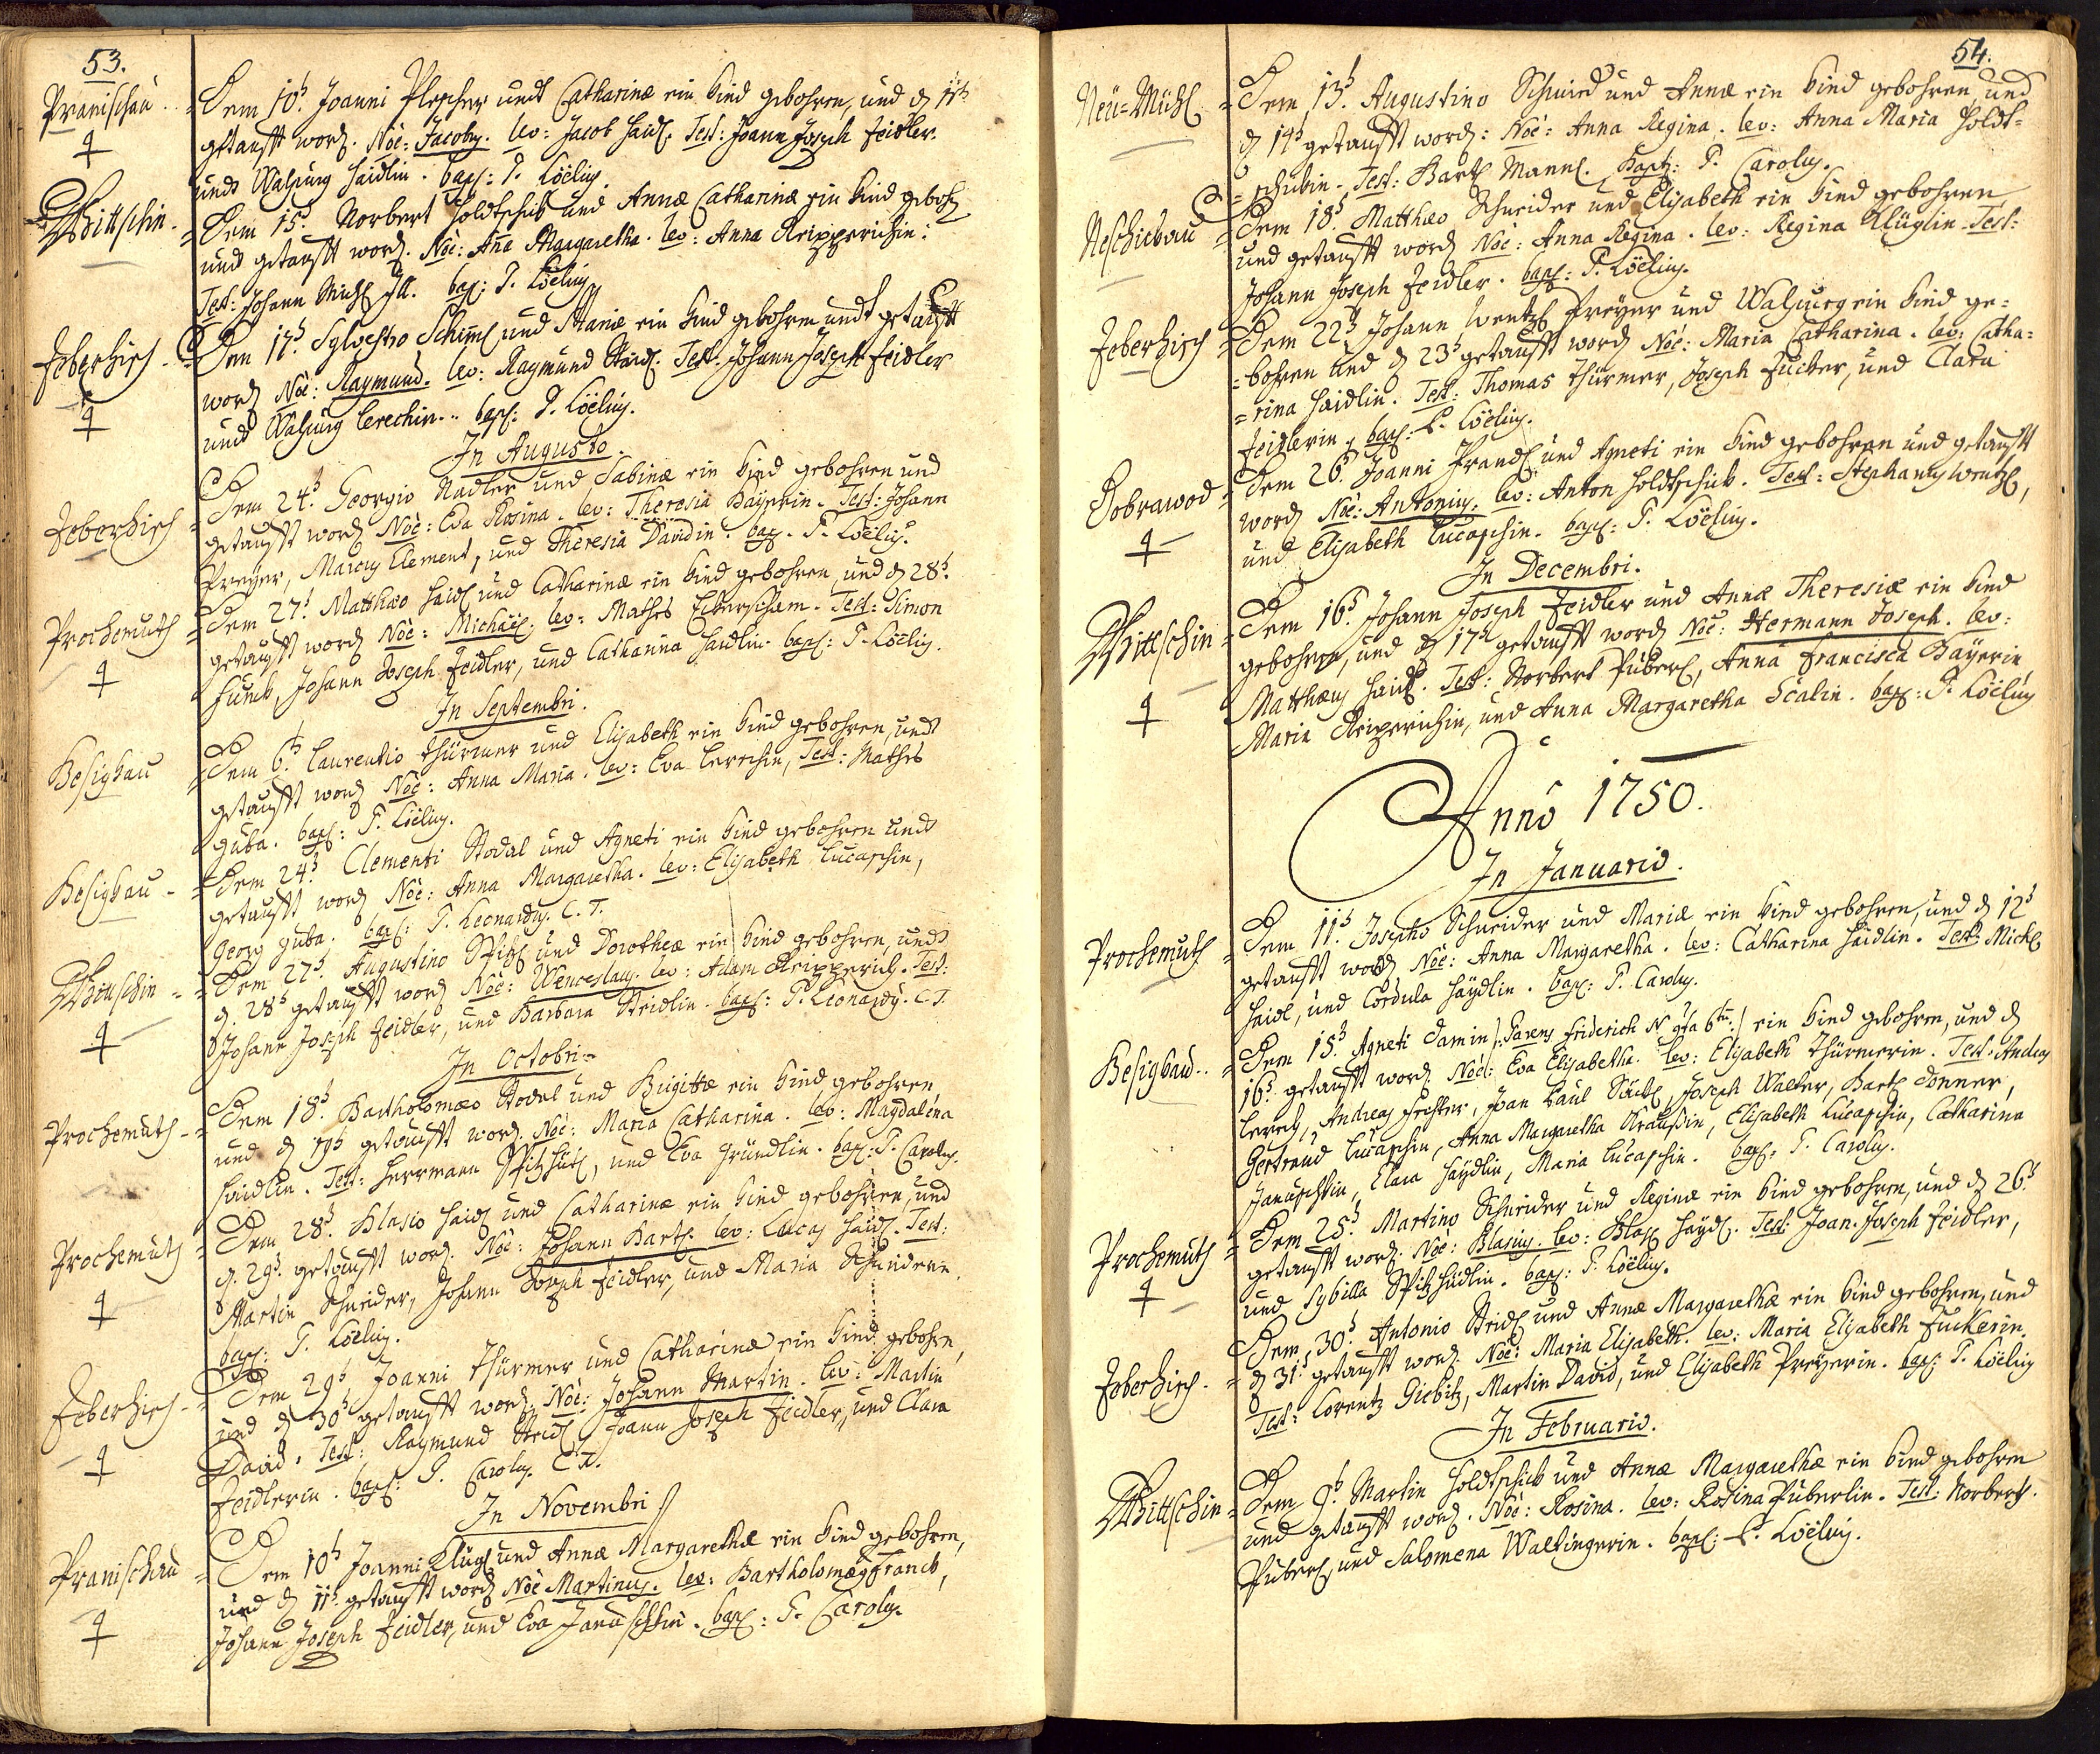 53.
Pranischau
Dem 10t. Joanni Plescher undt Catharinæ ein Kind gebohren, und d 11t
getaufft word. Noe: Jacobus. lev: Jacob Haidl. Test: Joann Joseph Zeidler.
undt Walburg Haidlin. bapt: P. Cölius.
Thittschin
Dem 15t. Norbert Holdtschik und Annæ Catharinæ ein Kind gebohr
und getaufft word. Noe: Ana Margaretha. lev: Anna Kripperichin:
Test: Johann Michl bapt: P. Cölius
Zeberhisch
Dem 17t. Sylvestro Schiml und Mariæ ein Kind gebohren undt getaufft
word Noe: Raymund. lev: Raymund Stridl. Test: Johann Joseph Zeidler
undt Walburg Lerechin. bapt: P. Cölius.
In Augusto.
Zeberhisch
Dem 24t. Georgio Nadler und Sabinæ ein Kind gebohren und
getaufft word Noe: Eva Rosina. lev: Theresia Bayerin. Test: Johann
Preyer, Marcus Clement, und Theresia Davidin. bap. P. Cölius.
Prochomuth
Dem 27t Matthæo Haidl und Catharinæ ein Kind gebohren, und d 28t.
getaufft word Noe: Michäel. lev: Mathes Test: Simon
Funck, Johann Joseph Zeidler, und Catharina Haidlin. bapt: P. Cölius.
In Septembri.
Besighau
Dem 6t. Laurentio Thürmer und Elisabeth ein Kind gebohren, undt
getaufft word Noe: Anna Maria. lev: Eva Lerechin, Test: Mathes
Guba. bapt: P. Cölius.
Besighau
Dem 24t. Clementi Stodal und Agneti ein Kind gebohren undt
getaufft word Noe: Anna Margaretha. lev: Elisabeth Lucaschin,
Georg Guba. bapt: P. Leonardus. C. T.
Thittschin
Dem 27t. Augustino Spitzl und Dorotheæ ein Kind gebohren, undt
d. 28t getaufft word Noe: Wenceslaus. lev: Adam Kripperich. Test:
Johann Joseph Zeidler, und Barbara Stridlin. bapt: P. Leonardus. C. T.
In Octobri
Prochomuth
Dem 18t. Bartholomæo Stodal und Brigittæ ein Kind gebohren
und d 19t getaufft word. Noe: Maria Catharina. lev: Magdalena
Haidlin. Test: Herrmann Spitzhütl, und Eva Gründlin. bapt: P. Carolus.
Prochomuth
Dem 28t. Blasio Haidl und Catharinæ ein Kind gebohren, und
d. 29t. getaufft word. Noe: Johann Bartl. lev: Lucas Haidl. Test:
Martin Schneider, Johann Joseph Zeidler, und Maria Schneiderin.
bapt: P. Cölius.
Zeberhisch
Dem 29t Joanni Thürmer und Catharinæ ein Kind gebohrn,
und d 30t getaufft word. Noe: Johann Martin. lev: Martin
David. Test: Raymund Stridl Joann Joseph Zeidler, und Clara
Zeidlerin. bapt: P. Carolus. C. T.
In Novembri
Pranischau
Dem 10t Joanni Klügl und Annæ Margarethæ ein Kind gebohren,
und d 11t getaufft word Noe Martinus. lev: Bartholomæus Franck,
Johann Joseph Zeidler, und Eva Januschkin. bapt: P. Carolus.
54.
Neü-Mühl
Dem 13t. Augustino Schmied und Annæ ein Kind gebohren und
d 14t getaufft word: Noe: Anna Regina. lev: Anna Maria Holdt=
=schikin. Test: Bartl Mannl. Bapt: P. Carolus.
Neschickau
Dem 18t. Matthæo Schneider und Elisabeth ein Kind gebohren
und getaufft word Noe: Anna Regina. lev: Regina Klüglin. Test:
Johann Joseph Zeidler. bapt: P. Cölius.
Zeberhisch
Dem 22t Johann Wentzl Preyer und Walpurg ein Kind ge=
=bohren und d 23t getaufft word Noe: Maria Catharina. lev: Catha=
=rina Haidlin. Test: Thomas Thürmer, Joseph Fucker, und Clara
Zeidlerin, bapt: P. Cölius.
Dobrawod
Dem 26t. Joanni Prandl und Agneti ein Kind gebohren und getaufft
word Noe: Antonius. lev: Anton Holdtschik. Test: Stephanus Wentzl,
und Elisabeth Lucaschin. bapt: P. Cölius.
In Decembri.
Thittschin
Dem 16t. Johann Joseph Zeidler und Annæ Theresiæ ein Kind
gebohren, und d 17t getaufft word Noe: Hermann Joseph. lev:
Matthæus Haidl. Test: Norbert Püberl, Anna Francisca Bayerin
Maria Kripperichin, und Anna Margaretha Scalin. bapt: P. Cölius
Anno 1750.
In Januario.
Prochomuth
Dem 11t. Josepho Schneider und Mariæ ein Kind gebohren, und d 12t
getaufft word Noe: Anna Margaretha. lev: Catharina Haidlin. Test: Michl
Haidl, und Cordula Haydlin. bapt: P. Carolus.
Besighau
Dem 15t. Agneti Damin /: Parens Friderich N. :/ ein Kind gebohren, und d
16t. getaufft word. Noe: Eva Elisabetha. lev: Elisabeth Thürmerin. Test: Andreas
Lerech, Andreas Joan Paul Joseph Walter, Bartl Donner,
Gertraud Lucaschin, Anna Margaretha Kraussin, Elisabeth Lucaschin, Catharina
Januschkin, Clara Haydlin, Maria Lucaschin. bapt: P. Carolus.
Prochomuth
Dem 25t. Martino Schneider und Reginæ ein Kind gebohren, und d 26t
getaufft word. Noe: Blasius. lev: Blasl Haydl. Test: Joan. Joseph Zeidler,
und Sybilla Spitzhüdlin. bapt: P. Cölius.
Zeberhisch
Dem 30t. Antonio Stridl und Annæ Margarethæ ein Kind gebohren, und
d 31t. getaufft word. Noe: Maria Elisabeth. lev: Maria Elisabeth Fuckerin.
Test: Lorentz Giebitz, Martin David, und Elisabeth Preyerin. bapt: P. Cölius
In Februario.
Thittschin
Dem 9t. Martin Holdtschik und Annæ Margarethæ ein Kind gebohren
und getaufft word. Noe: Rosina. lev: Rosina Püberlin. Test: Norbert
Püberl, und Salomena Waltingerin. bapt: P. Cölius.